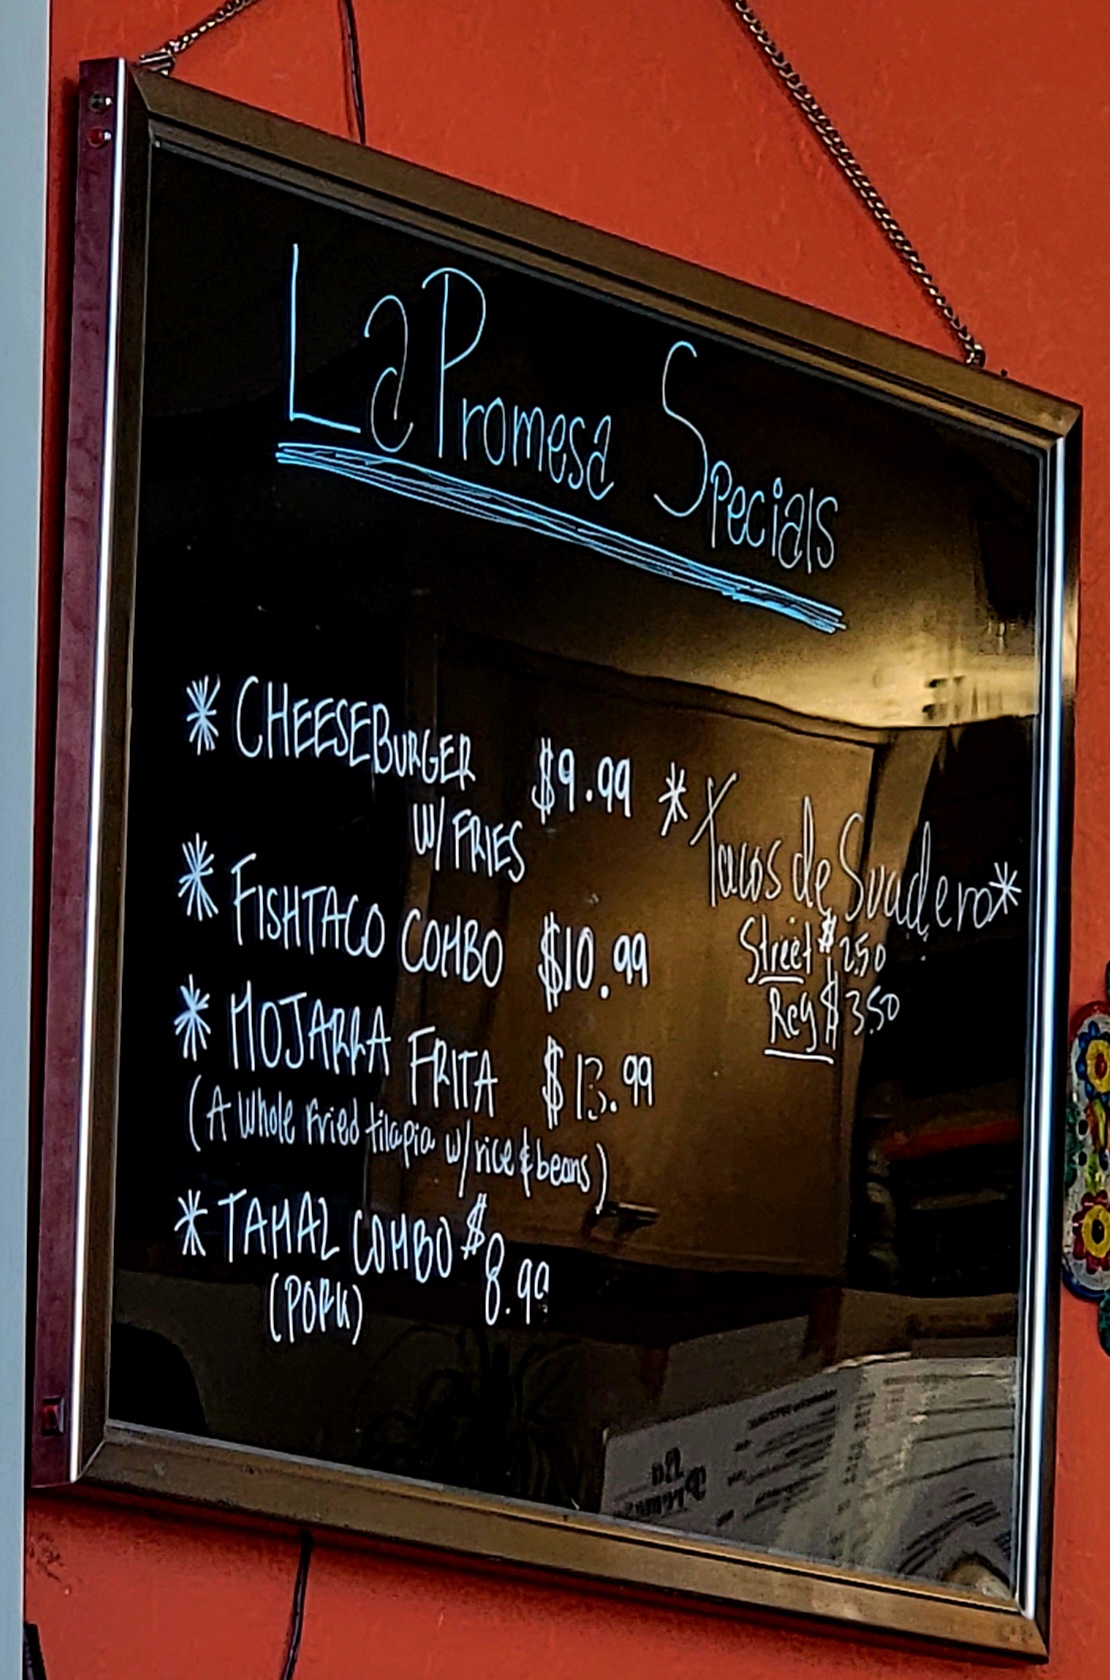 La Promesa Specials
* CHEESEBURGER $9.99
W/ FRIES
* FISHTACO COMBO $10.99
* MOJARRA FRITA $13.99
(A Whole Fried tilapia w/rice & beans)
* TAMAL COMBO $8.99
(PORK)
* Tacos de Suadero *
Street $2.50
Reg $3.50